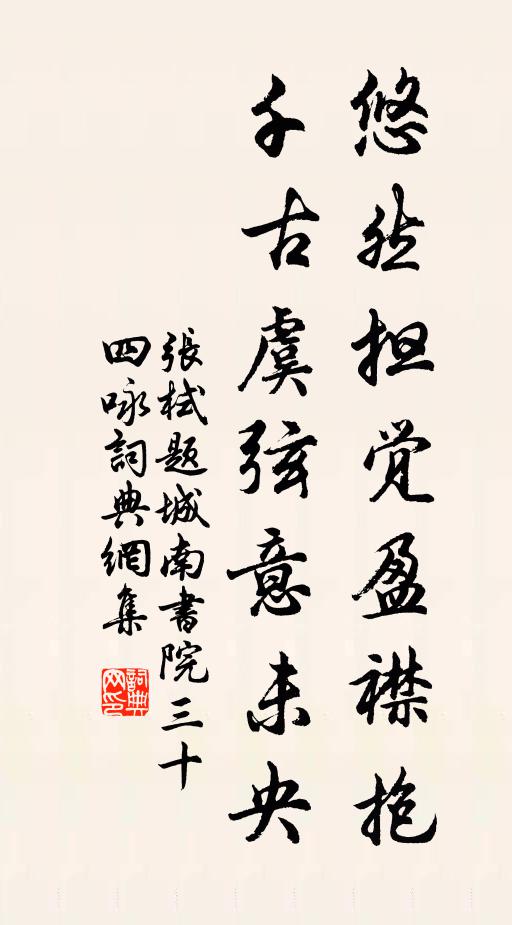 悠然担觉盈襟抱
千古虞弦意未央
張栻题城南書院三十
四咏詞典網集
詞典网印